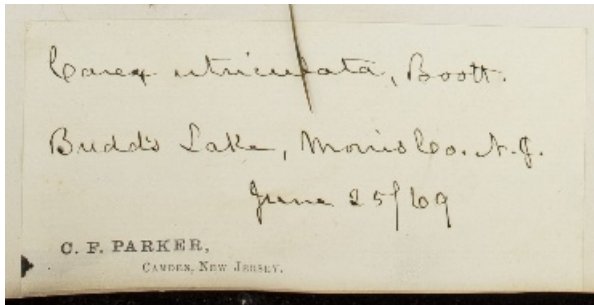 Carex utriculata, Boott.
Budd's Lake, Morris Co. N. J.
June 25/69
C. F. PARKER,
CAMDEN, NEW JERSEY.